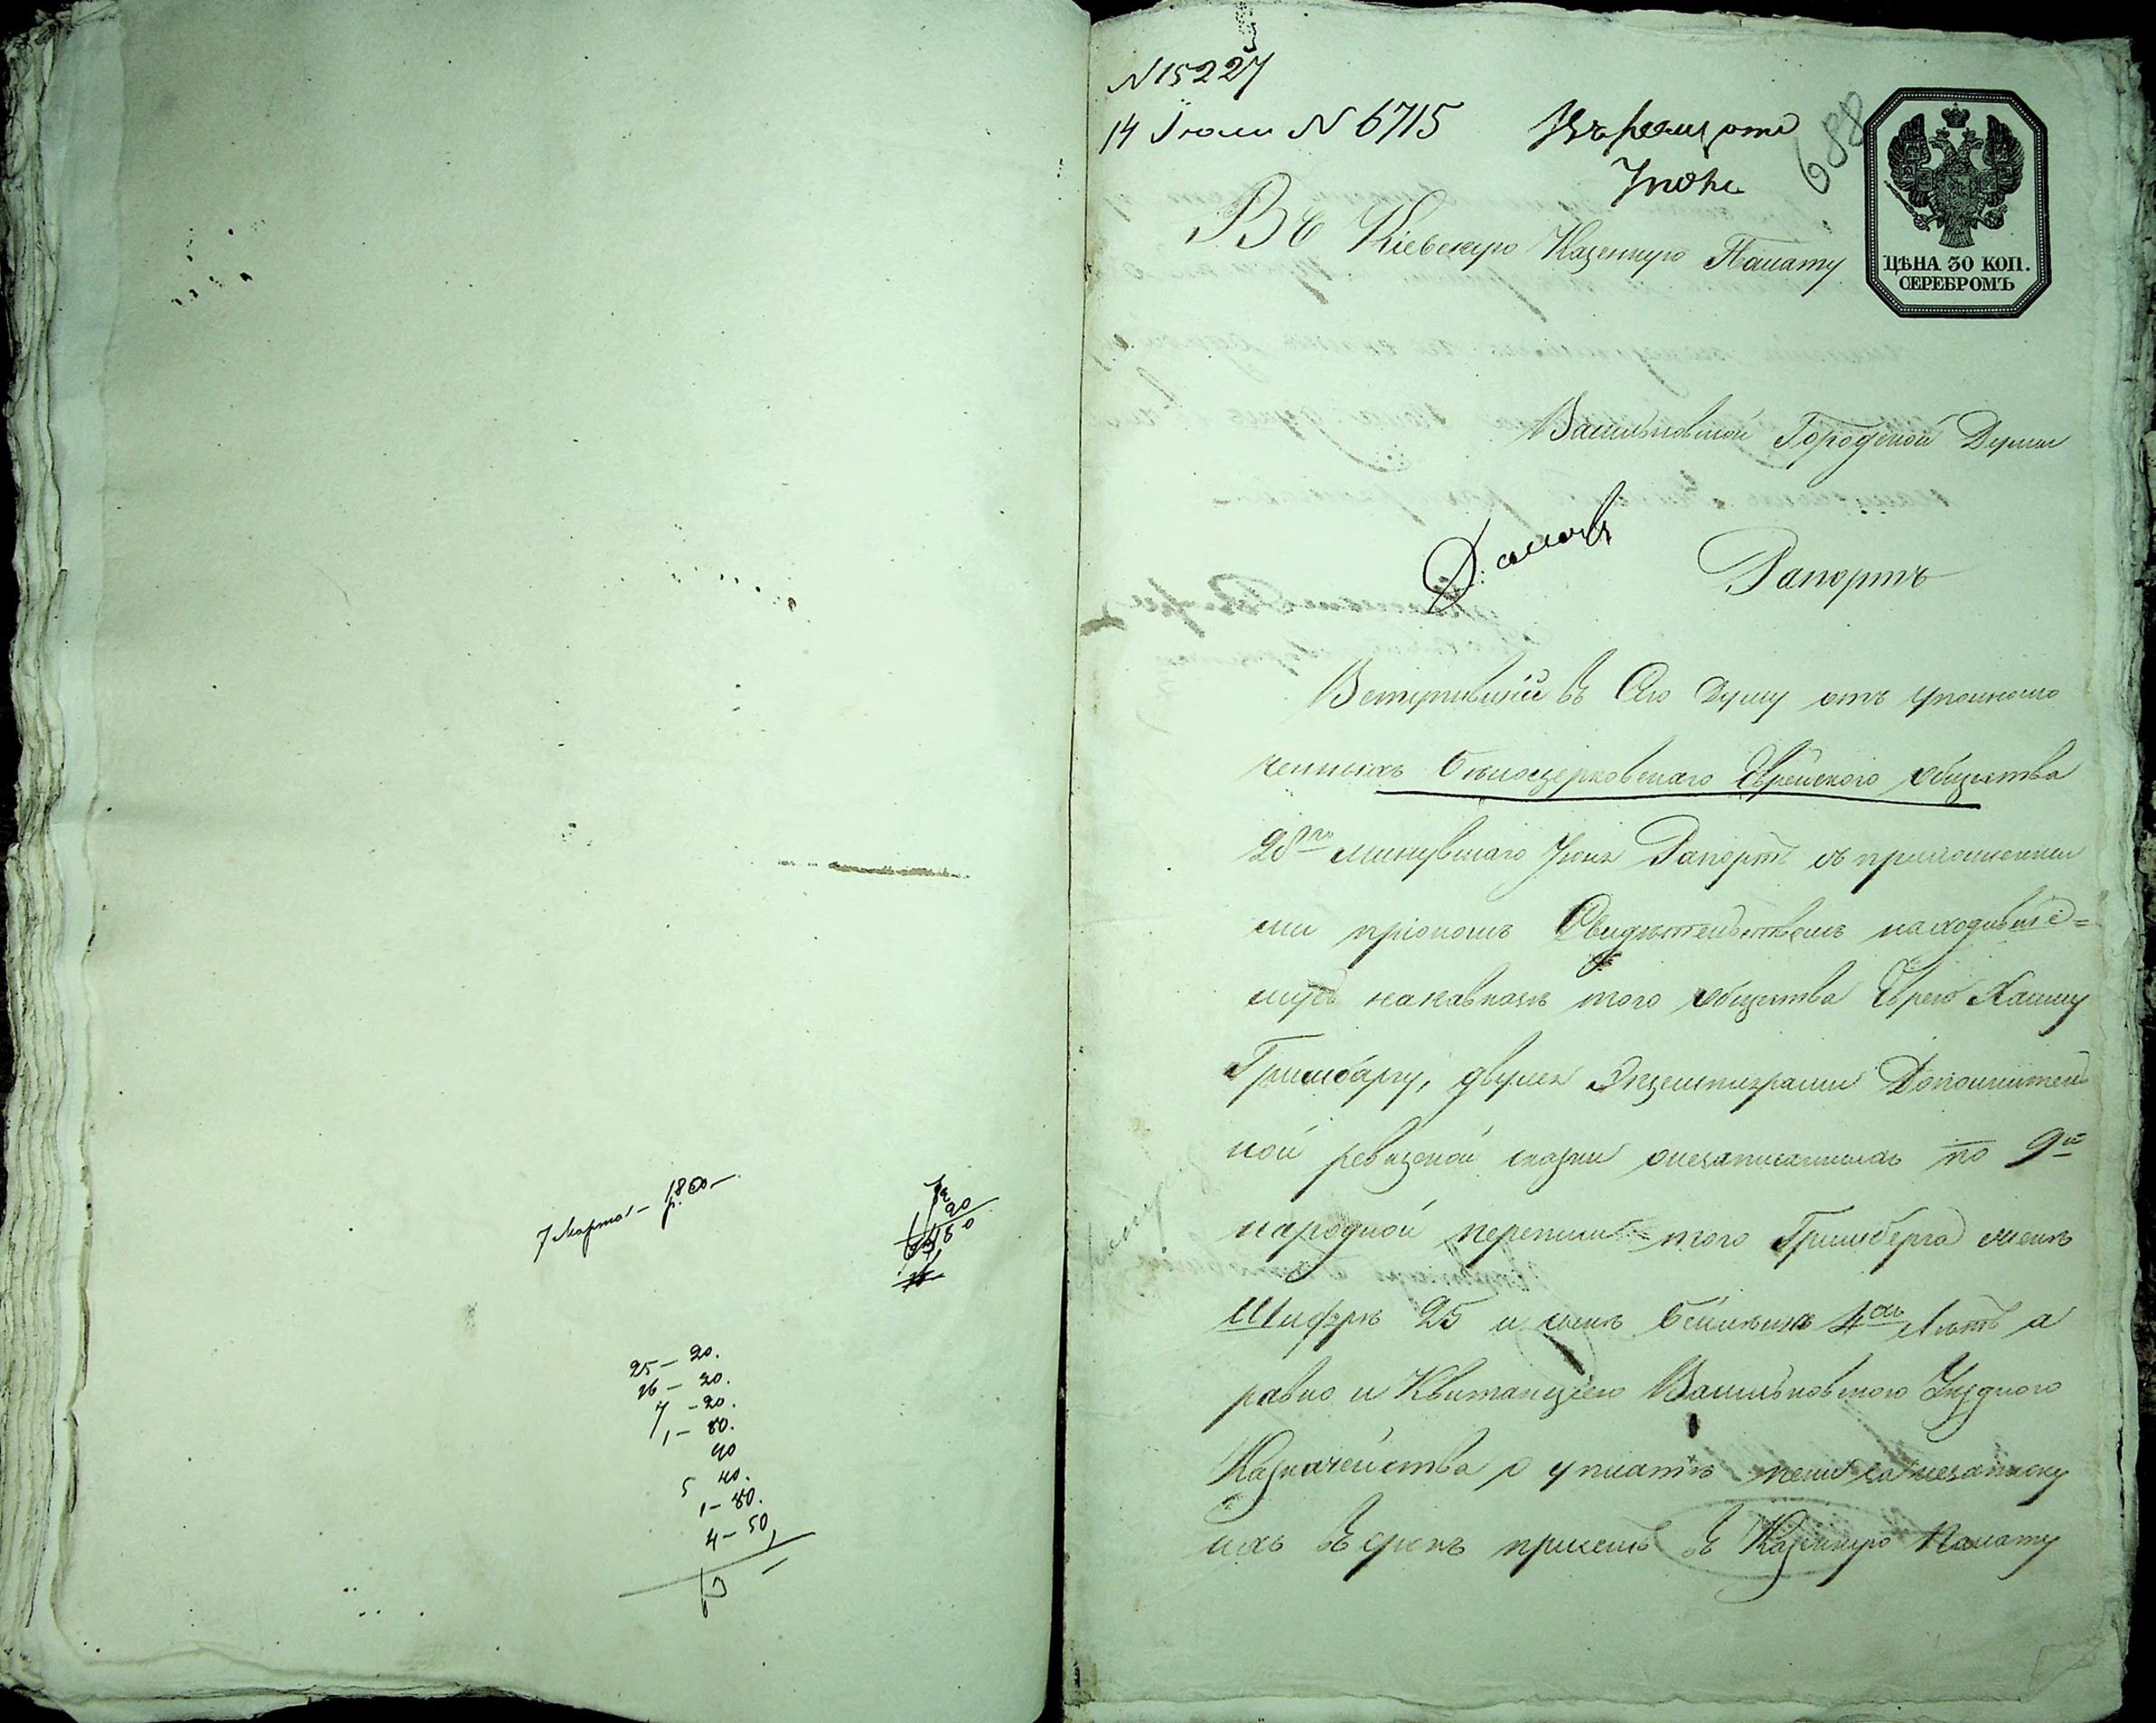 7 Марта – 1860 –
р.
25 – 20.
26 – 20.
7 – 20.
1 – 80.
40
5 40.
1 – 80.
4 – 50
N 15227
14 Іюля N 6715
688
ЦѢНА 30 КОП.
СЕРЕБРОМЪ
Въ Кіевскую Казенную Палату
Васильковской Городской Думы
Рапортъ
Вступившій въ Сію Думу отъ уполномо
ченныхъ Бѣлоцерковскаго Еврейскаго общества
28го минувшаго Іюня Рапортъ съ приложенны
ми при ономъ Свидѣтельствомъ находивше=
муся на кавказѣ того общества Еврею Хаиму
Гринбергу, двумя Экземплярами Дополнитель
ной ревизской сказки о незаписанныхъ по 9й
народной переписи того Гринберга женѣ
Шифрѣ 25 и сынѣ 4хъ лѣтъ а
равно и Квитанціею Васильковского Уѣзднаго
Казначейства о уплатѣ пени за незаписку
ихъ въ срокъ въ Казенную Палату